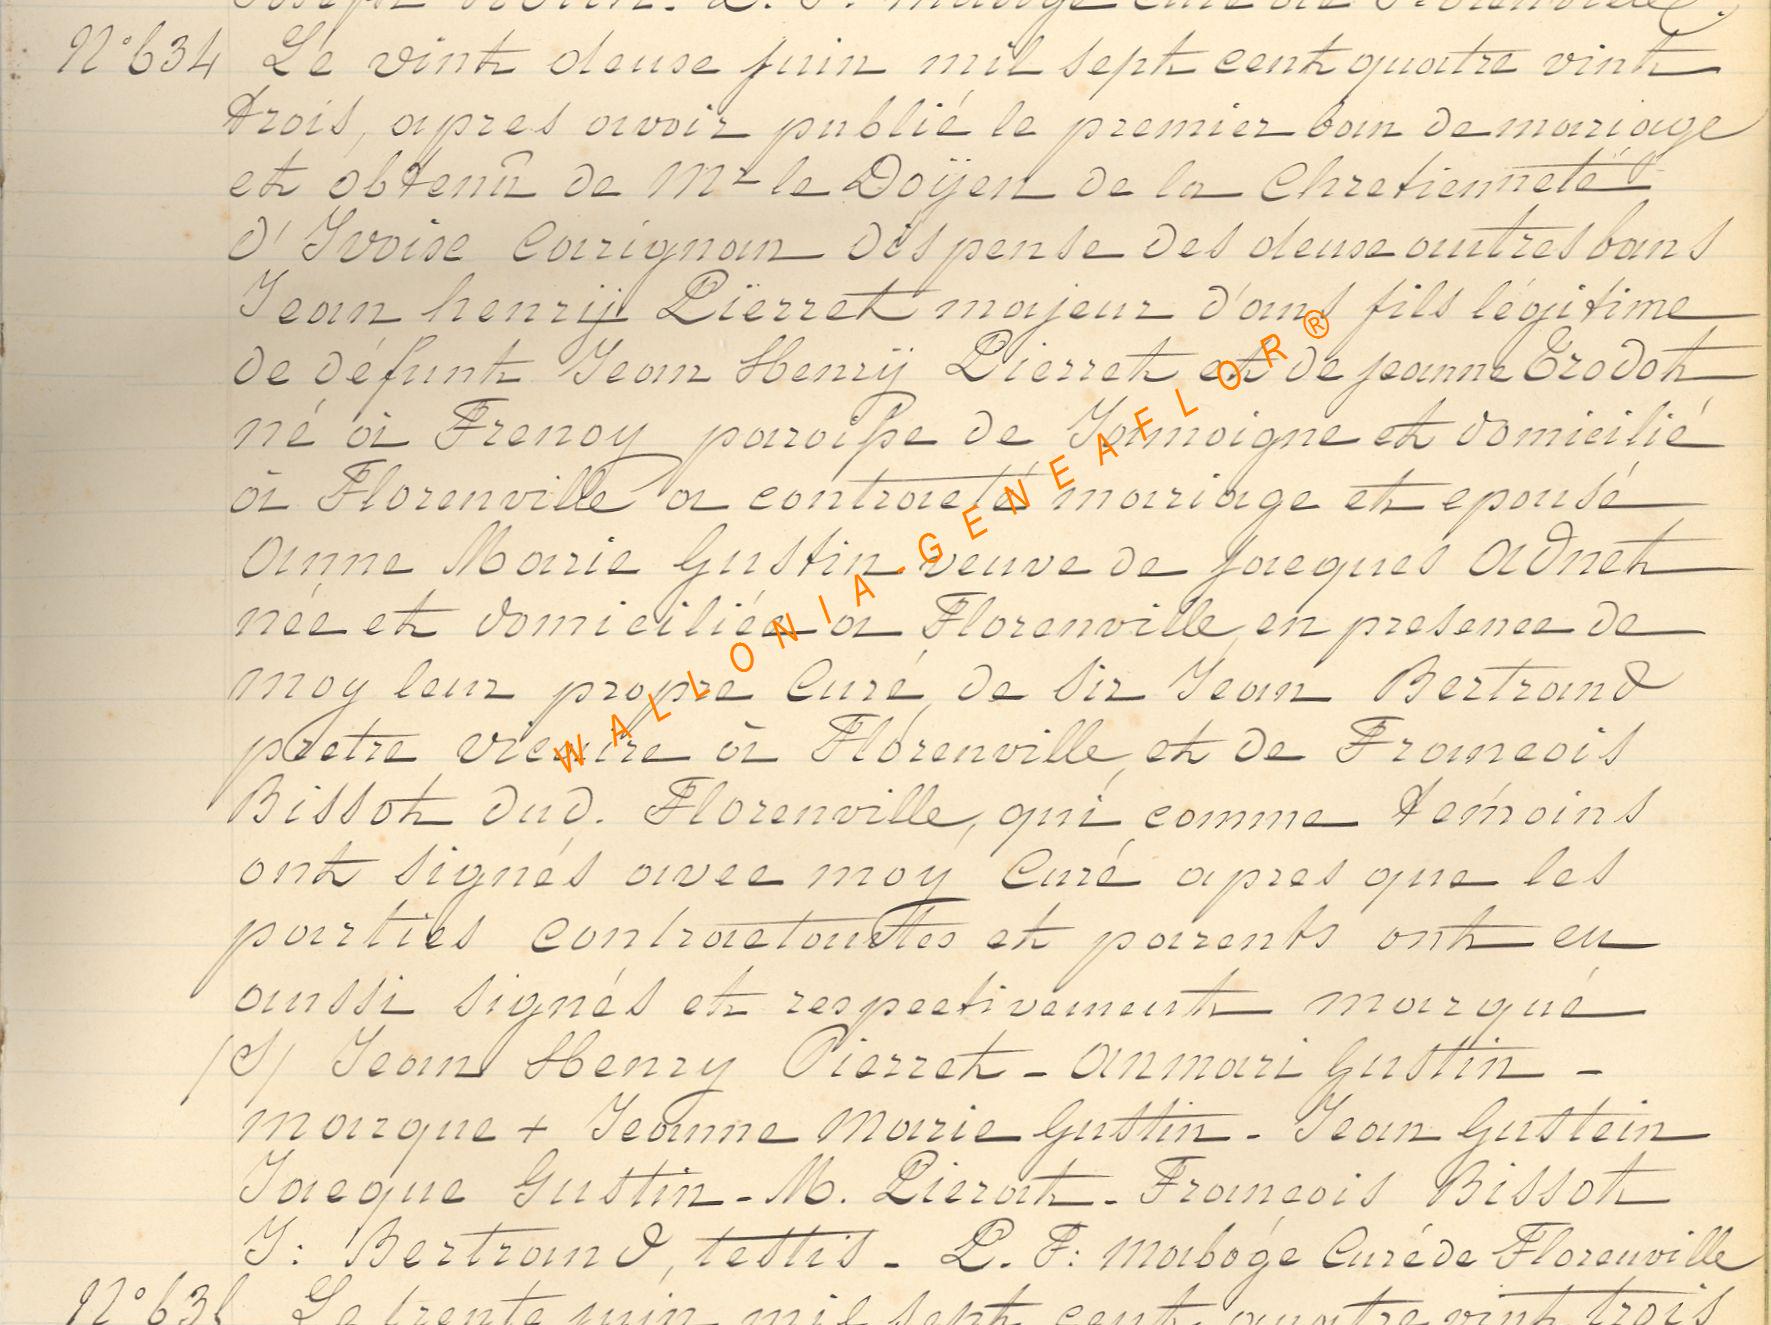 N° 634 Le vint deuxe juin mil sept cent quatre vint
trois, apres avoir publié le premier ban de mariage
et obtenû de Mr le Doÿen de la Chretienneté
d'Ivoixe Carignan dispense des deuxe autres bans
Jean henrÿ Pïerret majeur d'ans fils légitime
de défunt Jean Henrÿ Pierret et de jeanne Erodot
né à Frenoy paroisse de Jamoigne et domicilié
à Florenville a contracté mariage et epousé
Anne Marie Gustin veuve de Jacques Adnet
née et domiciliée a Florenville, en presence de
moy leur propre Curé, de Sir Jean Bertrand
pretre vicaire à Florenville, et de Francois
Bissot dud. Florenville, qui comme temoins
ont signés avec moy Curé apres que les
parties contractantes et parents ont eu
aussi signés et respectivement marqué
/S/ Jean Henry Pierret - Anmari Gustin -
marque + Jeanne Marie Gustin - Jean Gustein
Jacque Gustin - M. Pierat - Francois Bissot
J: Bertrand, testis - P. F: Maboge Curé de Florenville
Le trente juin mil sept cent quatre vint trois
WALLONIA-GENEAFLOR®